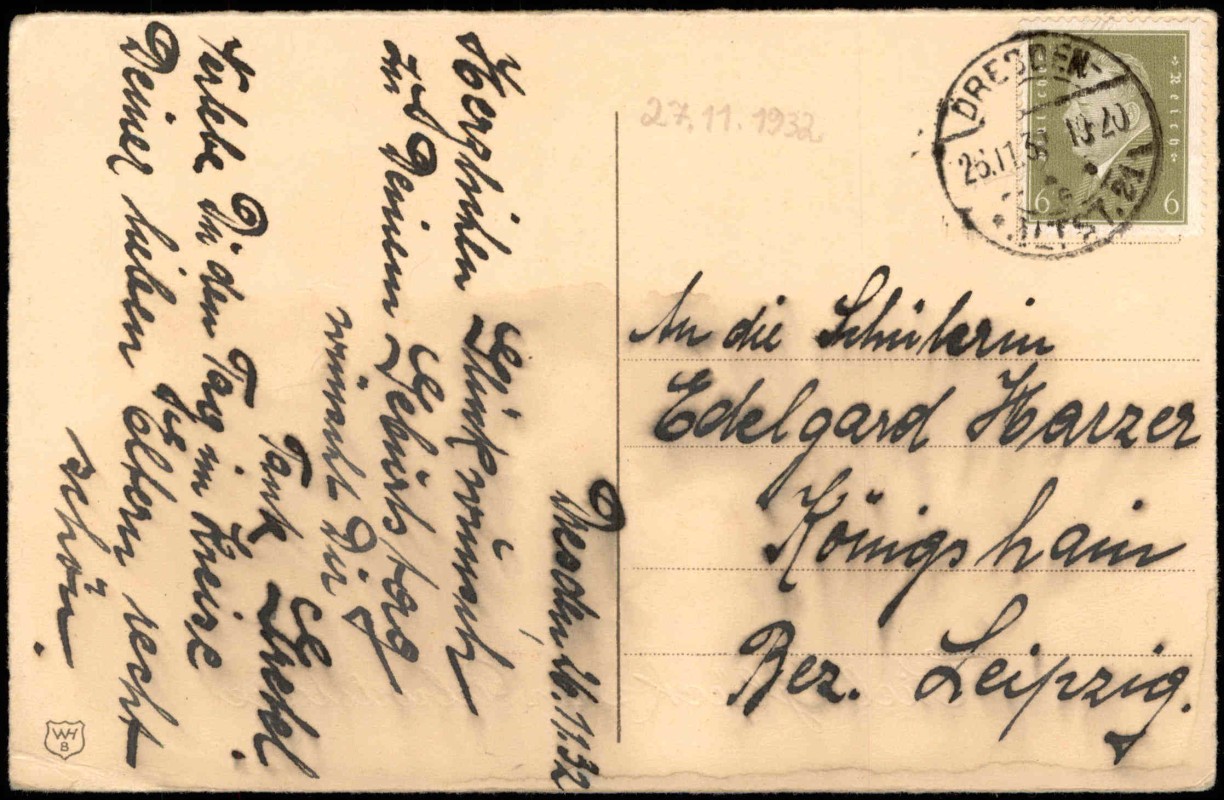 Dresden, 26.11.32
Herzlichen Glückwunsch
zu Deinem Geburtstag
wünscht Dir
Tante Gretel
Verlebe Du den Tag im Kreise
Deiner lieben Eltern recht
schön.
WH
B
27.11.1932
DRESDEN-
26.11.32 19-20
Deutsches Reich
6 6
An die Schülerin
Edelgard Harzer
Königshain
Bez. Leipzig.